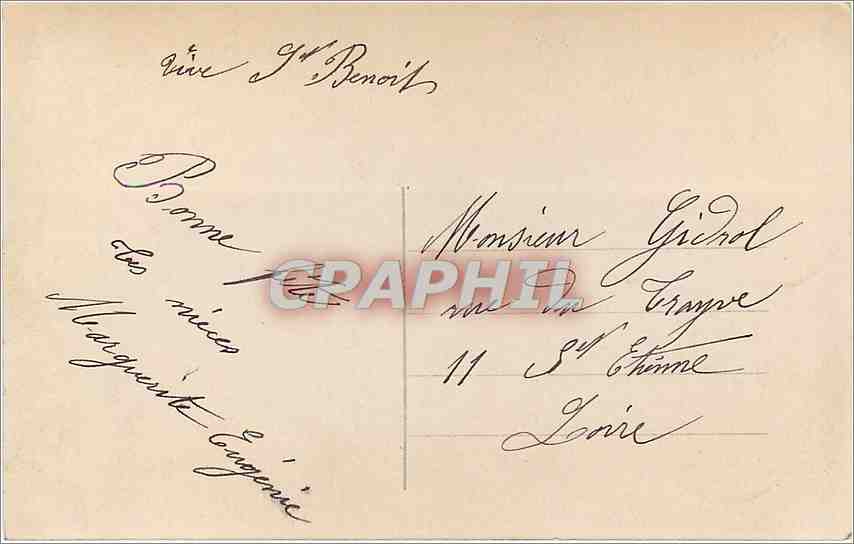 vive St Benoit
Bonne fête
tes nièces
Marguerite Eugénie
CPAPHIL
Monsieur Gidrol
rue du Trayve
11 St Etienne
Loire